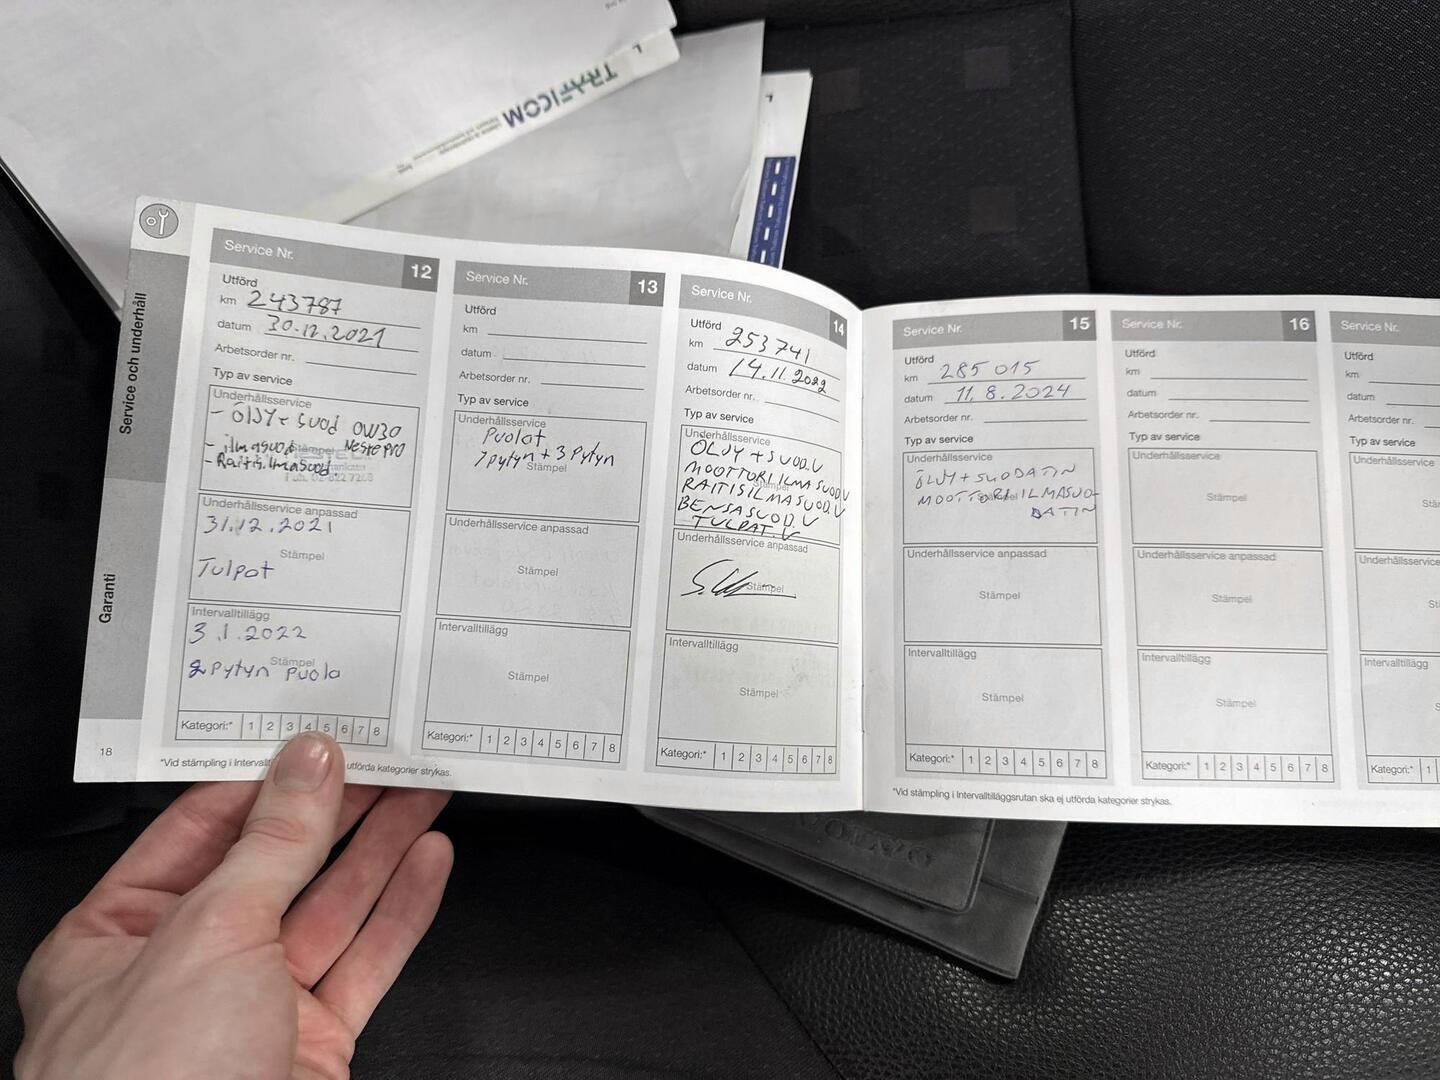 TRAFICOM
Service och underhåll
Garanti
18
Service Nr. 12
Utförd
km 243787
datum 30.12.2021
Arbetsorder nr.
Typ av service
Underhållsservice
- ÖLJY + suod 0W30
Neste pro
- ilmasuod
Stämpel
- Raitisilmasuod.
Underhållsservice anpassad
31.12.2021
Stämpel
Tulpat
Intervalltillägg
3.1.2022
Stämpel
2 pytyn puola
Kategori:* 1 2 3 4 5 6 7 8
Service Nr. 13
Utförd
km
datum
Arbetsorder nr.
Typ av service
Underhållsservice
Puolat
1 pytyn + 3 pytyn
Stämpel
Underhållsservice anpassad
Stämpel
Intervalltillägg
Stämpel
Kategori:* 1 2 3 4 5 6 7 8
Service Nr. 14
Utförd
km 253741
datum 14.11.2022
Arbetsorder nr.
Typ av service
Underhållsservice
ÖLJY + SUOD. V
MOOTTORI ILMASUOD. V
Stämpel
RAITISILMASUOD. V
BENSASUOD. V
TULPAT. V
Underhållsservice anpassad
Stämpel
Intervalltillägg
Stämpel
Kategori:* 1 2 3 4 5 6 7 8
*Vid stämpling i Intervallt utförda kategorier strykas.
Service Nr. 15
Utförd
km 285 015
datum 11.8.2024
Arbetsorder nr.
Typ av service
Underhållsservice
ÖLJY + SUODATIN
MOOTTORI ILMASUO-
Stämpel
DATIN
Underhållsservice anpassad
Stämpel
Intervalltillägg
Stämpel
Kategori:* 1 2 3 4 5 6 7 8
Service Nr. 16
Utförd
km
datum
Arbetsorder nr.
Typ av service
Underhållsservice
Stämpel
Underhållsservice anpassad
Stämpel
Intervalltillägg
Stämpel
Kategori:* 1 2 3 4 5 6 7 8
Service Nr.
Utförd
km
datum
Arbetsorder nr.
Typ av service
Underhållsservice
Underhållsservice
Intervalltillägg
Kategori:* 1
*Vid stämpling i Intervalltilläggsrutan ska ej utförda kategorier strykas.
VOLVO